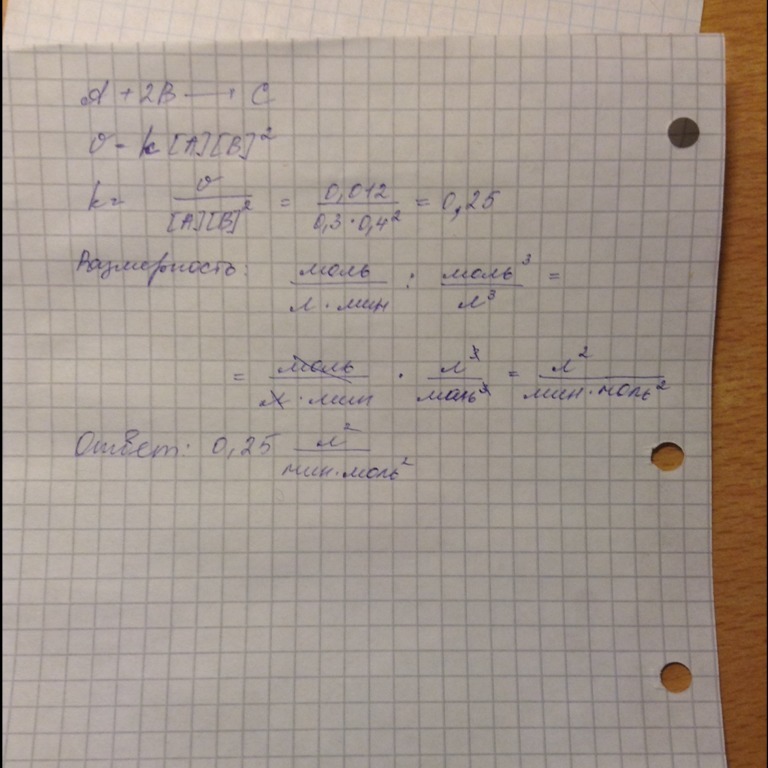 A + 2B → C
v = k [A][B]²
k = v / [A][B]² = 0,012 / 0,3 · 0,4² = 0,25
Размерность: моль / л · мин : моль³ / л³ =
= моль / л · мин · л³ / моль³ = л² / мин · моль²
Ответ: 0,25 л² / мин · моль²